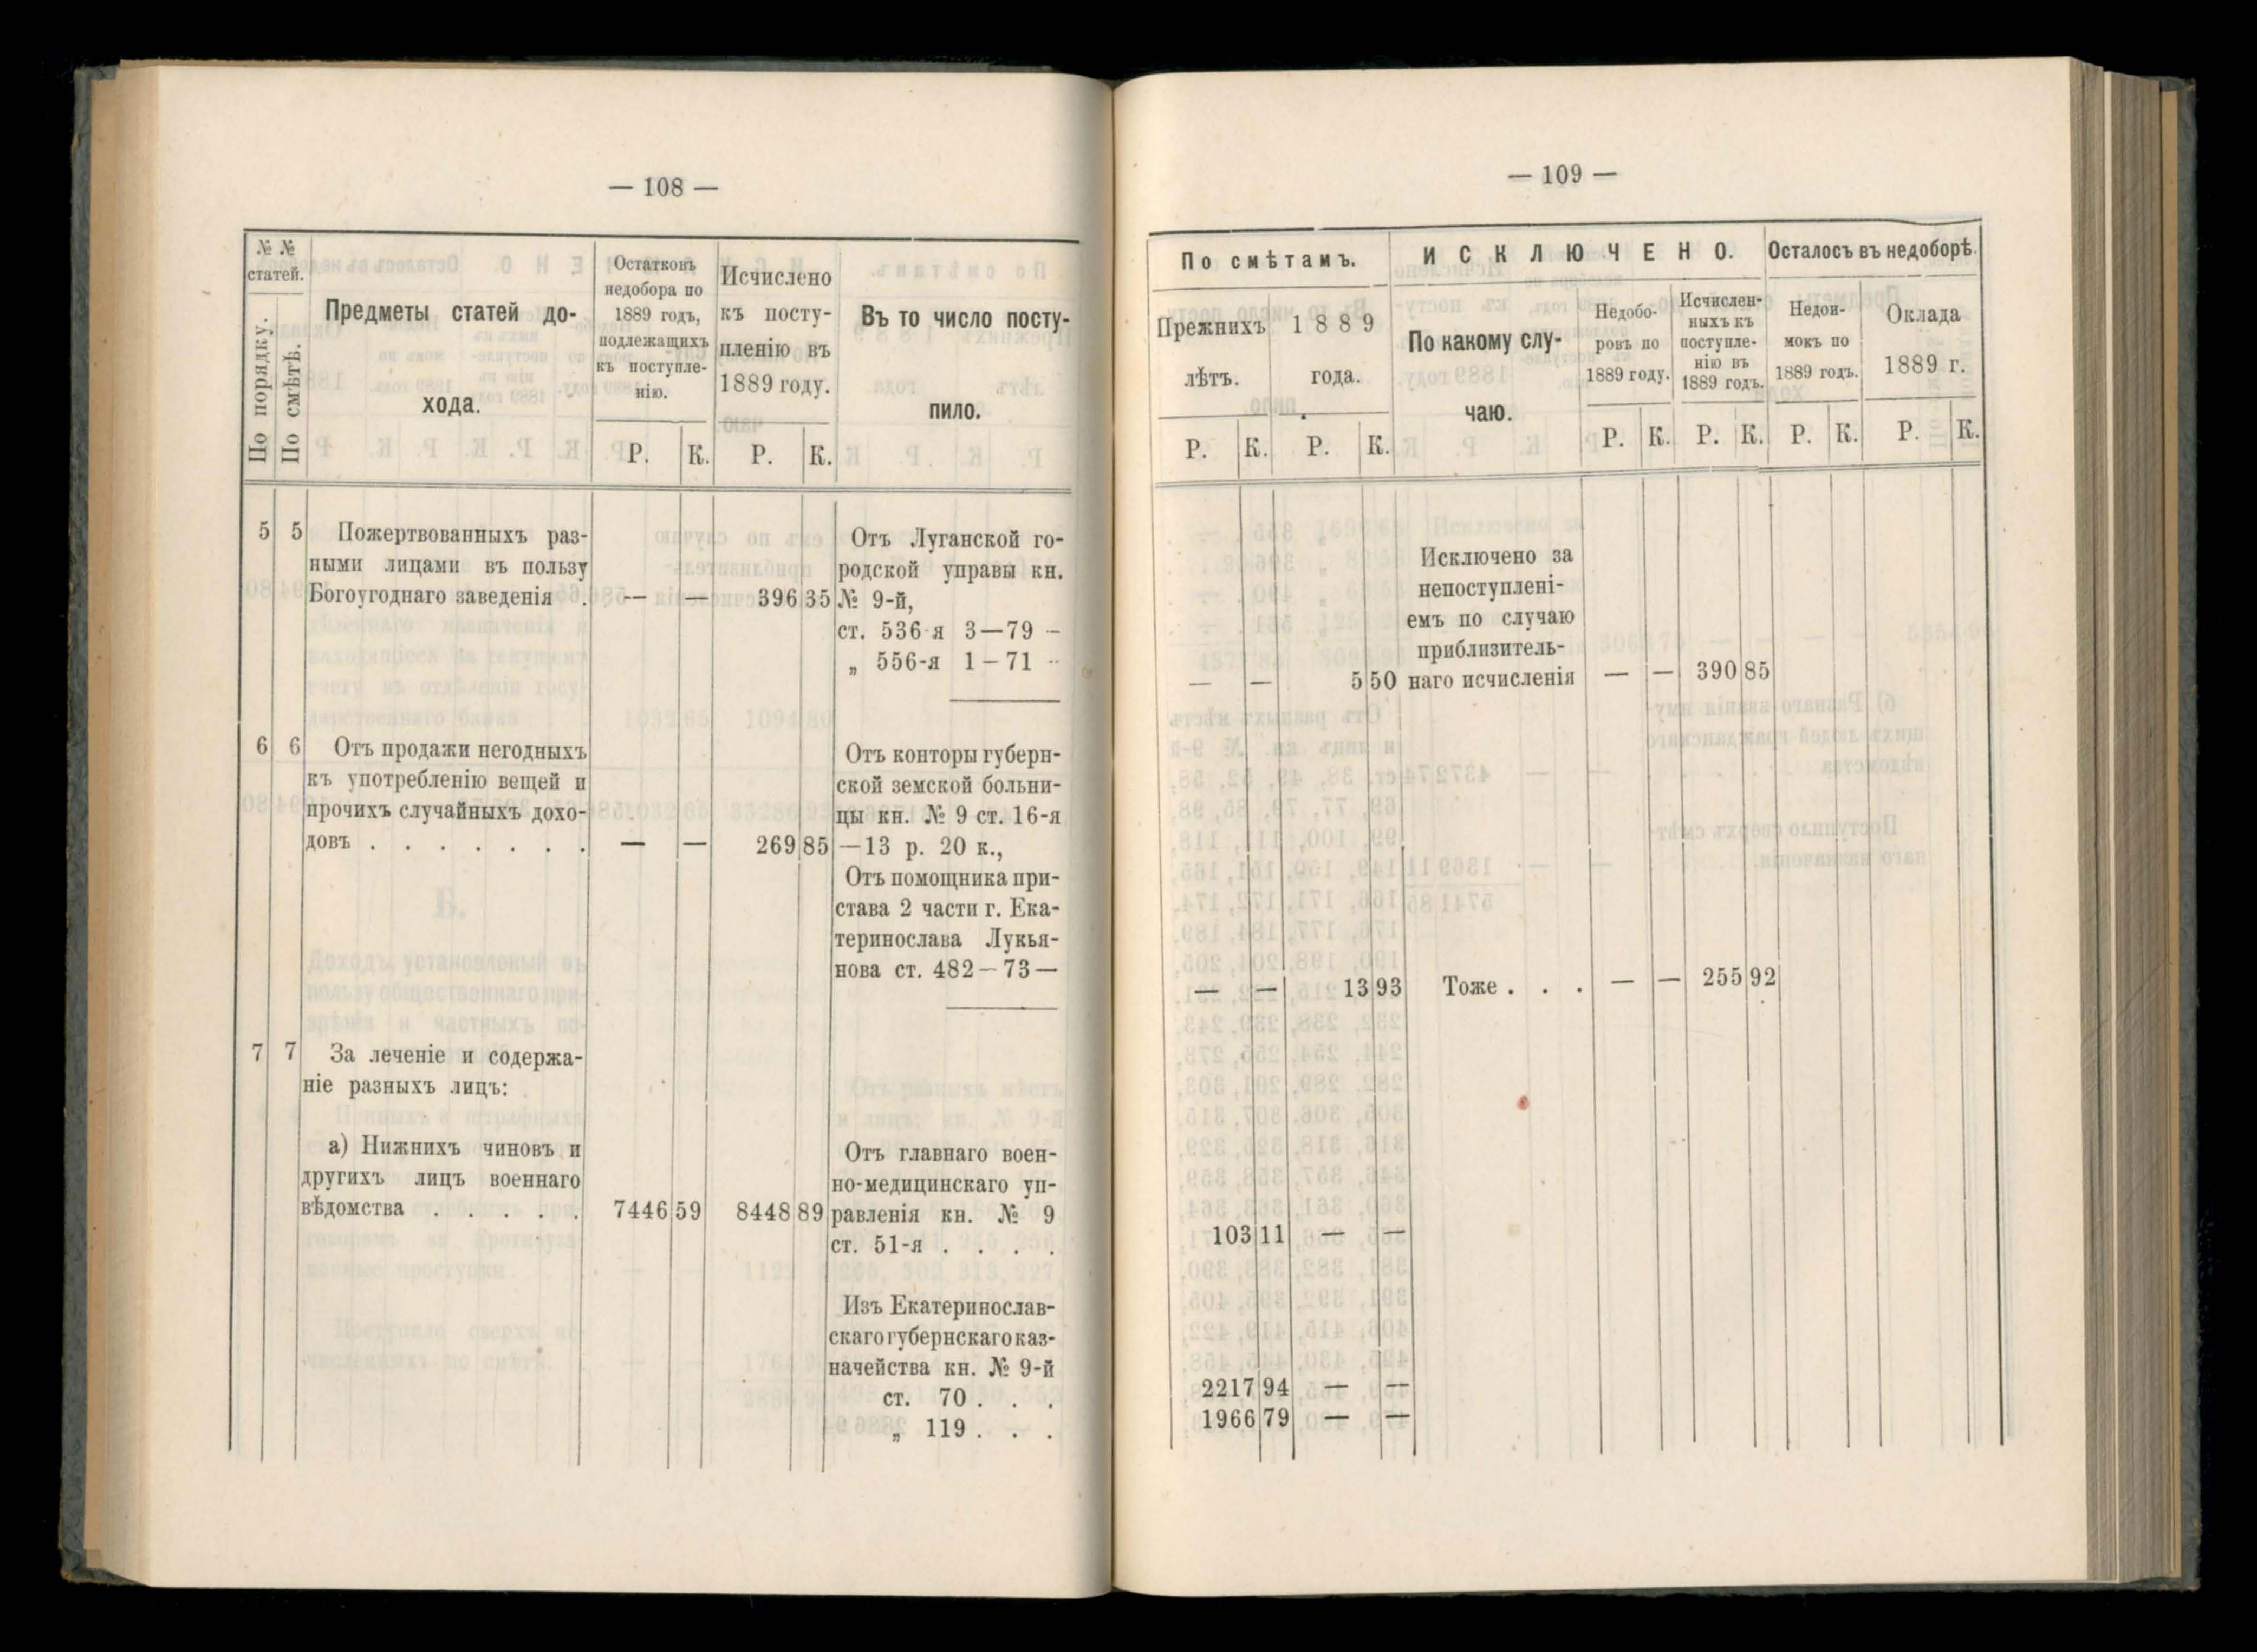 — 108 —
№ №
статей.
По порядку.
По смѣтѣ.
Предметы статей до-
хода.
Остатковъ
недобора по
1889 годъ,
подлежащихъ
къ поступле-
нію.
Исчислено
къ посту-
пленію въ
1889 году.
Въ то число посту-
пило.
Р. К. Р. К.
5 5 Пожертвованныхъ раз-
ными лицами въ пользу
Богоугоднаго заведенія . — — 396 35
Отъ Луганской го-
родской управы кн.
№ 9-й,
ст. 536-я 3—79 —
„ 556-я 1—71 —
6 6 Отъ продажи негодныхъ
къ употребленію вещей и
прочихъ случайныхъ дохо-
довъ . . . . . . . — — 269 85
Отъ конторы губерн-
ской земской больни-
цы кн. № 9 ст. 16-я
—13 р. 20 к.,
Отъ помощника при-
става 2 части г. Ека-
теринослава Лукья-
нова ст. 482—73—
7 7 За леченіе и содержа-
ніе разныхъ лицъ:
а) Нижнихъ чиновъ и
другихъ лицъ военнаго
вѣдомства . . . . . 7446 59 8448 89
Отъ главнаго воен-
но-медицинскаго уп-
равленія кн. № 9
ст. 51-я . . . .
Изъ Екатеринослав-
скаго губернскаго каз-
начейства кн. № 9-й
ст. 70 . . .
„ 119 . . .
— 109 —
По смѣтамъ.
Прежнихъ
лѣтъ.
1889
года.
ИСКЛЮЧЕНО.
По какому слу-
чаю.
Недобо-
ровъ по
1889 году.
Исчислен-
ныхъ къ
поступле-
нію въ
1889 годъ.
Осталось въ недоборѣ.
Недои-
мокъ по
1889 годъ.
Оклада
1889 г.
Р. К. Р. К. Р. К. Р. К. Р. К. Р. К.
Исключено за
непоступлені-
емъ по случаю
приблизитель-
— — 5 50 наго исчисленія — — 390 85
— — 13 93 Тоже . . . — — 255 92
103 11 — —
2217 94 — —
1966 79 — —